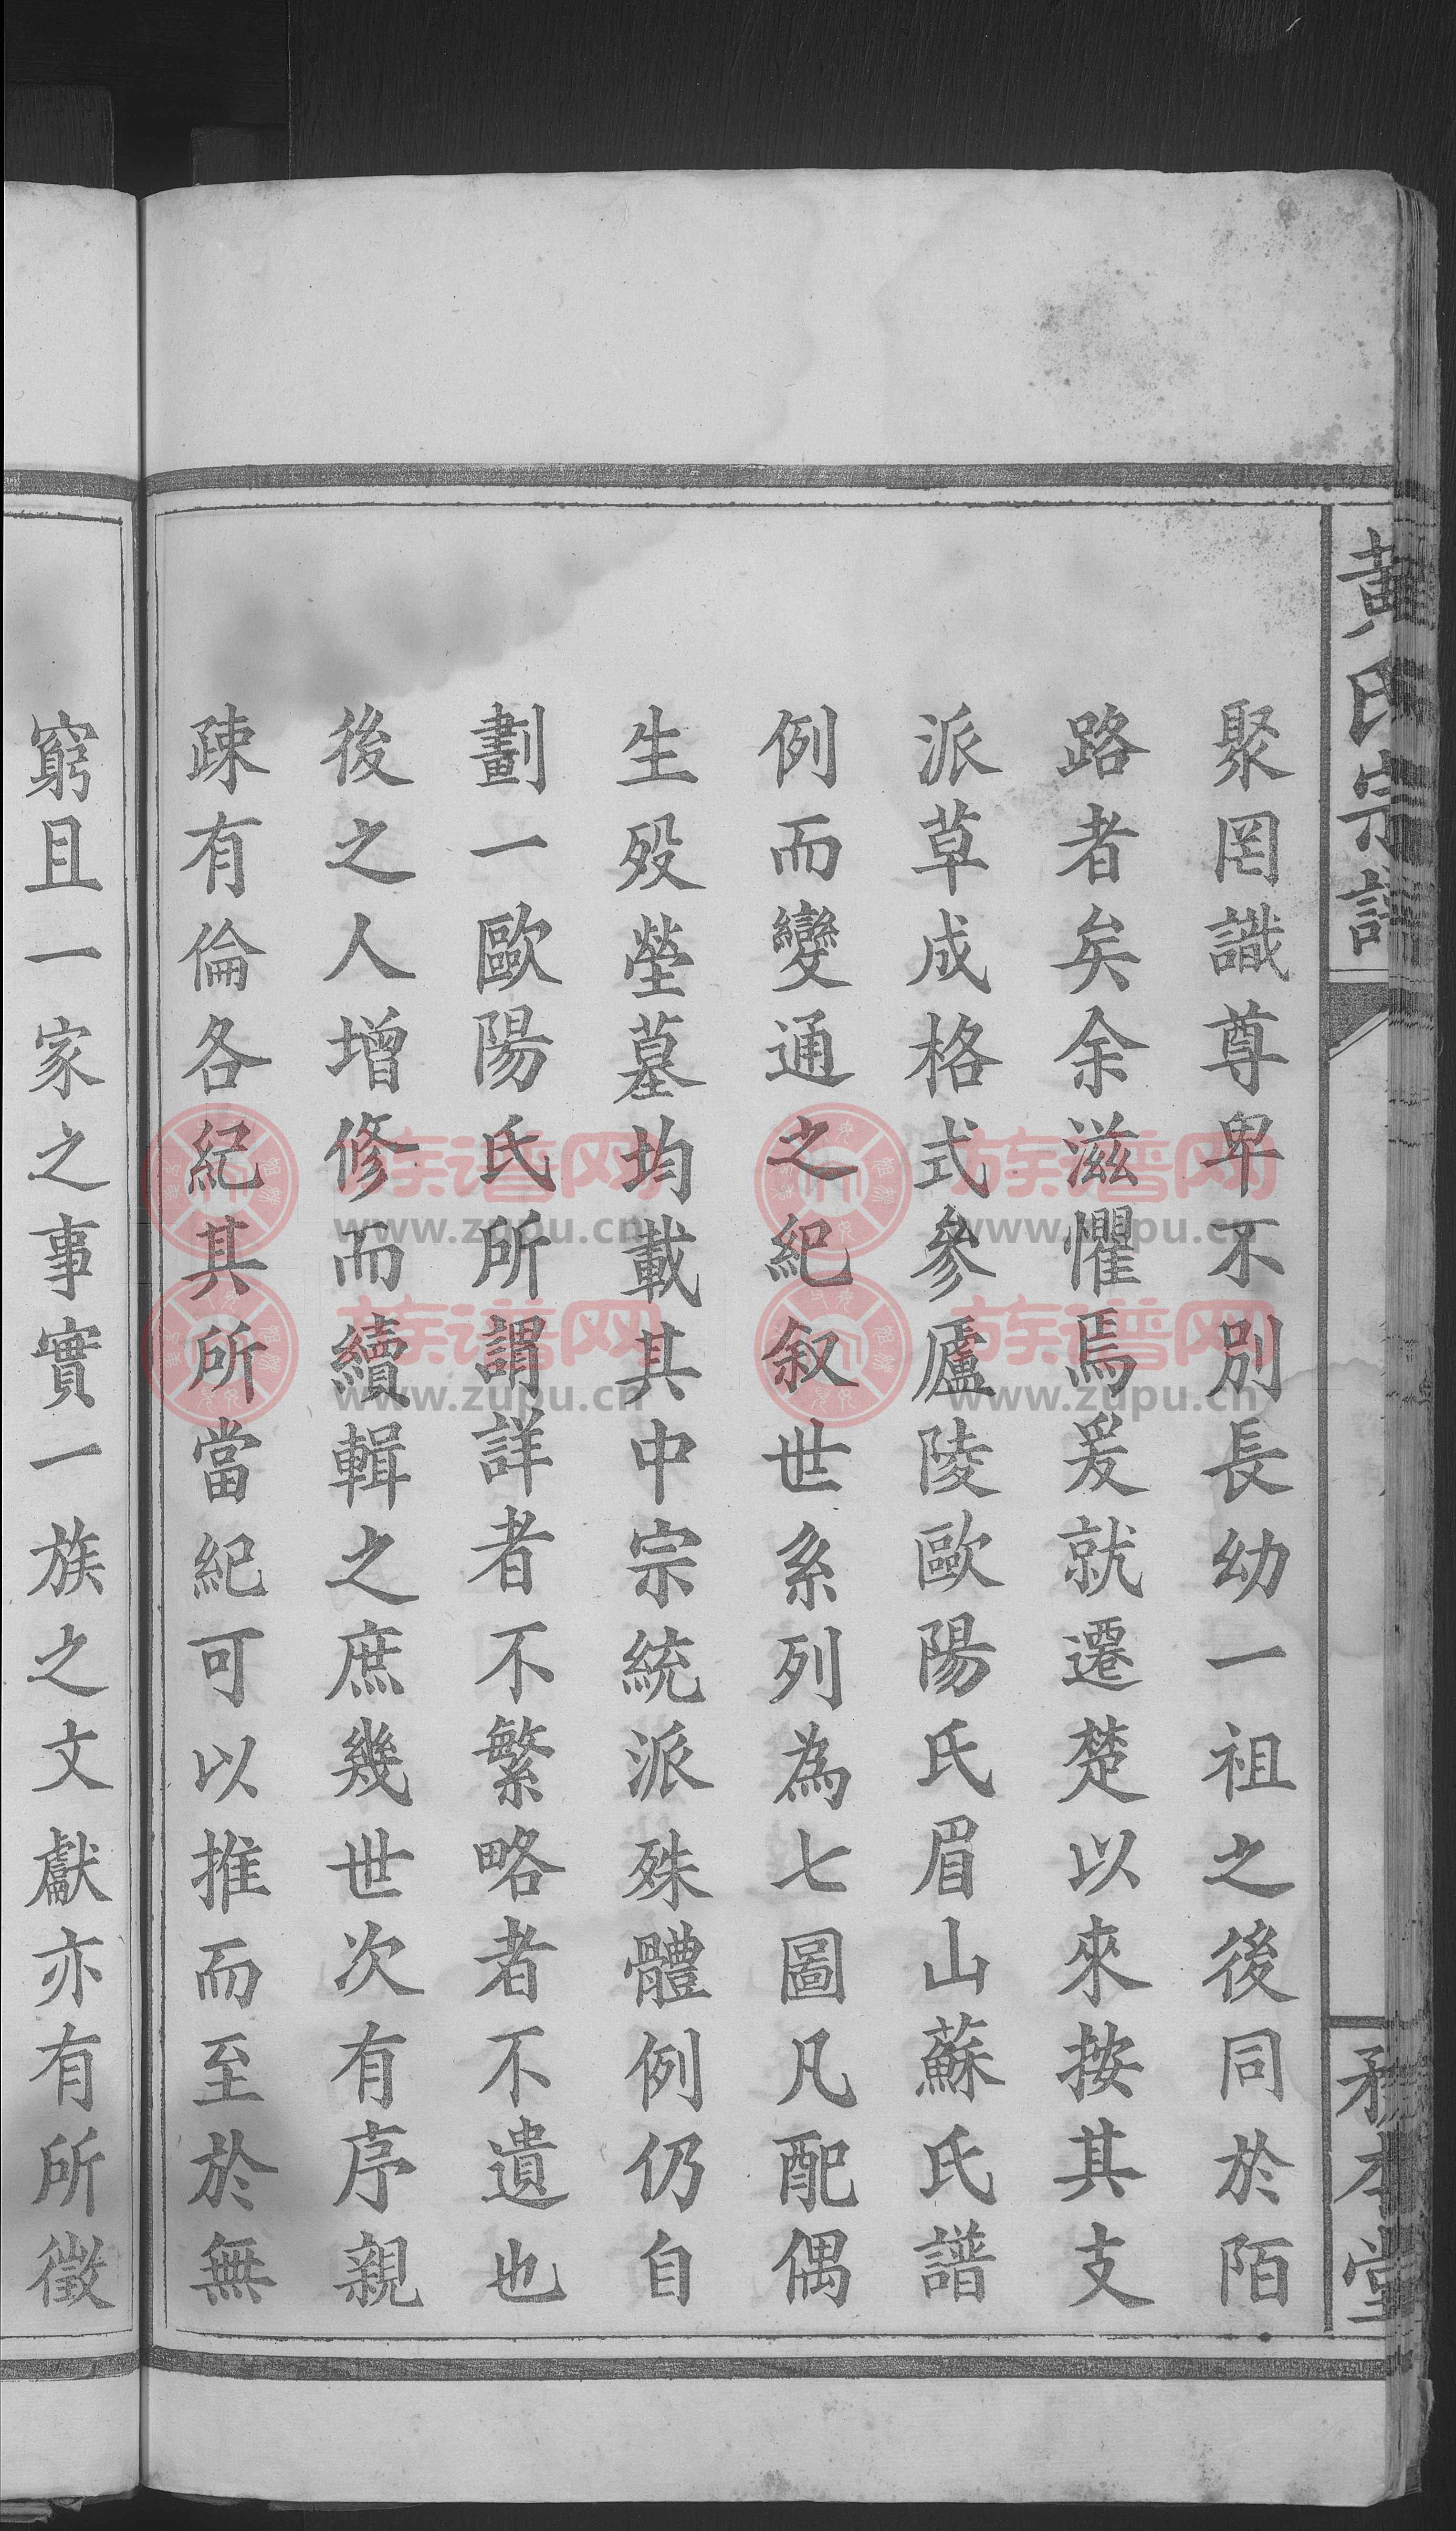 黃氏宗譜
聚罔識尊卑不別長幼一祖之後同於陌
路者矣余滋懼焉爰就遷楚以來按其支
派草成格式參廬陵歐陽氏眉山蘇氏譜
例而變通之紀叙世系列為七圖凡配偶
生歿塋墓均載其中宗統派殊體例仍自
劃一歐陽氏所謂詳者不繁略者不遺也
後之人增修而續輯之庶幾世次有序親
疎有倫各紀其所當紀可以推而至於無
窮且一家之事實一族之文獻亦有所徵
本堂
族谱网
www.zupu.cn
族谱网
www.zupu.cn
族谱网
www.zupu.cn
族谱网
www.zupu.cn